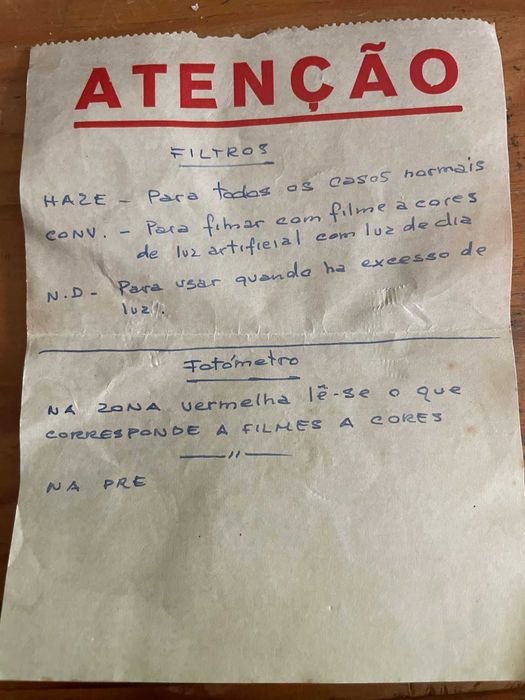 ATENÇÃO
FILTROS
HAZE - Para todos os casos normais
CONV. - Para filmar com filme a cores
de luz artificial com luz de dia
N.D - Para usar quando ha excesso de
luz.
Fotómetro
NA ZONA vermelha lê-se o que
CORRESPONDE A FILMES A CORES
NA PRE